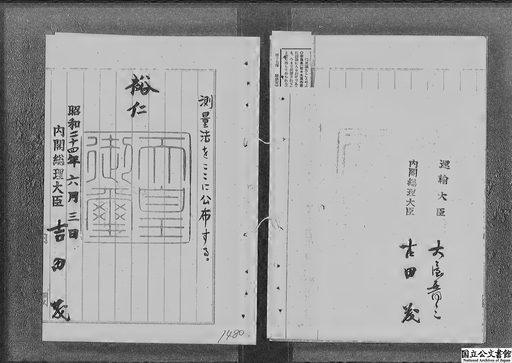 測量法をここに公布する。
裕仁
天皇御璽
昭和二十四年六月三日
内閣総理大臣 吉田茂
運輸大臣
内閣総理大臣 吉田茂
1480
国立公文書館
National Archives of Japan